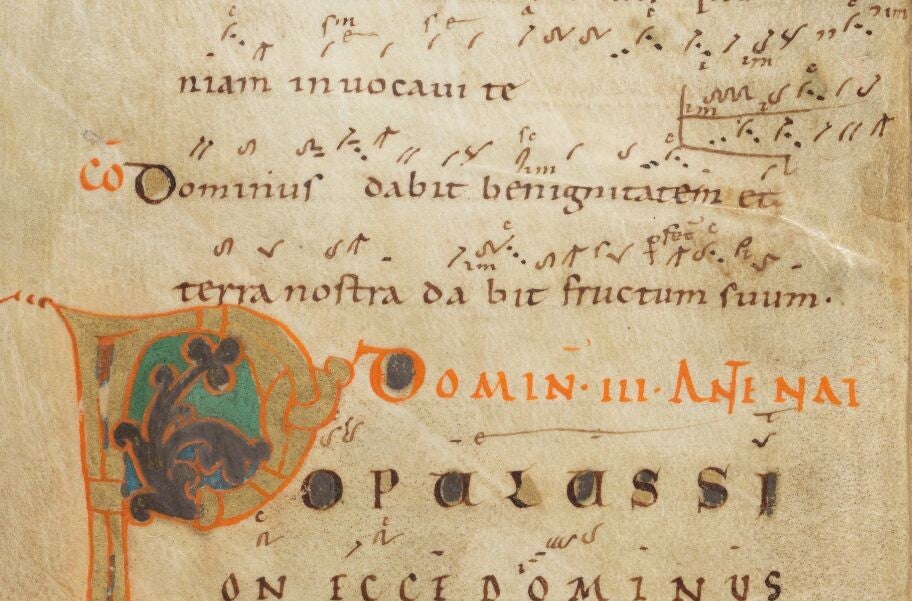 niam inuocaui te
cō Dominus dabit benignitatem et
terra nostra da bit fructum suum.
DOMIN·III·ANTE NAT
POPULUS SI
ON ECCE DOMINUS